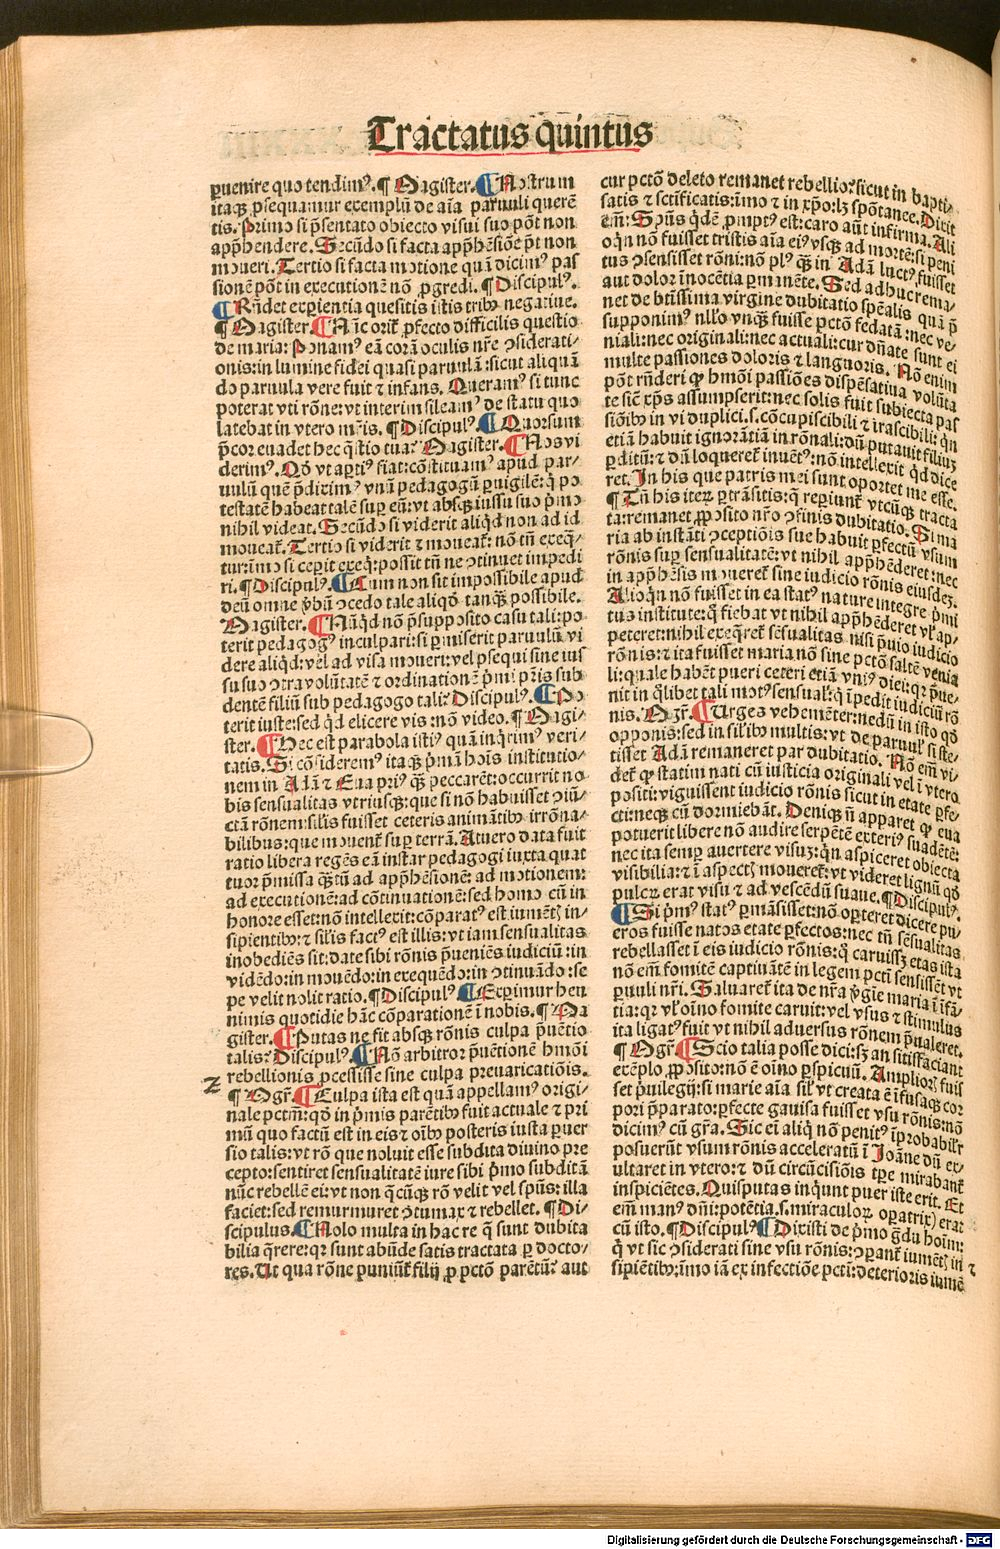 Tractatus quintus
ꝑuenire quo tendimꝰ. ¶ Magister. ¶ Nostrum
itaqꝫ ꝓsequamur exemplū de aīa paruuli querē
tis. Primo si p̄sentato obiecto visui suo pōt non
app̄hendere. Secūdo si facta app̄hēsiōe pt̄ non
moueri. Tertio si facta motione quā dicimꝰ pas
sionē pōt in executionē nō ꝓgredi. ¶ Discipulꝰ.
¶ Rn̄det exꝑientia quesitis istis tribꝰ negatiue.
¶ Magister. ¶ Nūc orit̄ ꝓfecto difficilis questio
de maria: Ponamꝰ eā corā oculis nr̄e ↄsiderati-
onis: in lumine fidei quasi paruulā: sicut aliquā
do paruula vere fuit ⁊ infans. Queramꝰ si tunc
poterat vti rōne: vt interim sileamꝰ de statu quo
latebat in vtero mr̄is. ¶ Discipulꝰ. ¶ Quorsum
p̄cor euadet hec q̄stio tua? Magister. ¶ Nos vi
derimꝰ. Qd̄ vt aꝑtiꝰ fiat: cōstituamꝰ apud par-
uulū quē p̄diximꝰ vnū pedagogū ꝑuigilē: q̄ po
testatē habeat talē suꝑ eū: vt absqꝫ iussu suo p̄mo
nihil videat. Secūdo si viderit aliqd̄ non ad id
moueat̄. Tertio si viderit ⁊ moueat̄: nō tn̄ exeq̄-
tur: īmo si ceꝑit exeq̄: possit tn̄ ne ↄtinuet impedi
ri. ¶ Discipulꝰ. ¶ Cum non sit impossibile apud
deū omne ṽbū ↄcedo tale aliqd̄ tanqꝫ possibile.
Magister. ¶ Nūqd̄ nō p̄supposito casu tali: po
terit pedagogꝰ inculpari: si ꝑmiserit paruulū vi
dere aliqd̄: vel ad visa moueri: vel ꝓsequi sine ius
su suo ↄtra volūtatē ⁊ ordinationē p̄mi pr̄is sub
dentē filiū sub pedagogo tali? Discipulꝰ. ¶ Po
terit iuste: sed qd̄ elicere vis: nō video. ¶ Magi-
ster. ¶ Hec est parabola istiꝰ quā inq̄rimꝰ veri-
tatis. Si cōsideremꝰ itaqꝫ p̄mā hoīs institutio-
nem in Adā ⁊ Eua priꝰ qꝫ peccarēt: occurrit no
bis sensualitas vtriusqꝫ: que si nō habuisset ↄiū-
ctā rōnem: silis fuisset ceteris animātibꝰ irrōna-
bilibus: que mouent̄ suꝑ terrā. At vero data fuit
ratio libera regēs eā instar pedagogi iuxta quat
tuor p̄missa qꝫtū ad app̄hēsionē: ad motionem:
ad executionē: ad cōtinuationē: sed homo cū in
honore esset: nō intellexit: cōparatꝰ est iumētꝭ in-
sipientibꝰ ⁊ silis factꝰ est illis: vt iam sensualitas
inobediēs sit: date sibi rōnis p̄ueniēs iudiciū: in
vidēdo: in mouēdo: in exequēdo: in ↄtinuādo: se
pe velit nolit ratio. ¶ Discipulꝰ. ¶ Exꝑimur hen
nimis quotidie hāc cōparationē ī nobis. ¶ Ma
gister. ¶ Putas ne fit absqꝫ rōnis culpa p̄uētio
talis? Discipulꝰ. ¶ Nō arbitror p̄uētionē hmōi
rebellionis ꝓcessisse sine culpa preuaricatiōis.
¶ Mgr̄. ¶ Culpa ista est quā appellamꝰ origi-
nale pctm̄: qd̄ in p̄mis parētibꝰ fuit actuale ⁊ pri
mū quo factū est in eis ⁊ oībꝰ posteris iusta ꝑuer
sio talis: vt rō que noluit esse subdita diuino pre
cepto: sentiret sensualitatē iure sibi p̄mo subditā
nūc rebellē ei: vt non q̄cūqꝫ rō velit vel spūs: illa
faciet: sed remurmuret ↄtumax ⁊ rebellet. ¶ Di-
scipulus. ¶ Nolo multa in hac re q̄ sunt dubita
bilia q̄rere: qꝛ sunt abūde satis tractata ꝑ docto-
res. Ut qua rōne puniūt̄ filij ꝓ pctō parētū? aut
cur pctō deleto remanet rebellio? sicut in bapti-
satis ⁊ sctificatis: īmo ⁊ in xp̄o: lꝫ spōtanee. Dicit
em̄: Spūs qdē ꝓmptꝰ est: caro aūt infirma. Ali
oqn̄ nō fuisset tristis aīa eiꝰ vsqꝫ ad mortē: si peni
tus ↄsensisset rōni: nō plꝰ qꝫ in Adā luctꝰ fuisset
aut dolor inocētia ꝑmanēte. Sed adhuc rema-
net de btissima virgine dubitatio spēalis quā p̄
supponimꝰ nllo vnqꝫ fuisse pctō fedatā: nec ve-
niali: nec originali: nec actuali: cur dn̄ate sunt ei
multe passiones doloris ⁊ languoris. Nō enim
pōt rn̄deri qꝛ hmōi passiōes dispēsatiua volūta
te sicut xp̄s assumpserit: nec solis fuit subiecta pas
siōibꝰ in vi duplici .s. cōcupiscibili ⁊ irascibili: qn̄
etiā habuit ignorātiā in rōnali: dū putauit filiuꝫ
ꝑditū: ⁊ dū loqueret̄ inuētꝰ: nō intellexit qd̄ dice
ret. In his que patris mei sunt oportet me esse.
¶ Tn̄ his iteꝝ ꝑtrāsitis: q̄ reꝑiunt̄ vtcūqꝫ tracta
ta: remanet ꝓposito nr̄o ↄfinis dubitatio. Si ma
ria ab instāti ↄceptiōis sue habuit ꝑfectū vsum
rōnis suꝑ sensualitatē: vt nihil app̄hēderet: nec
in app̄hēsis moueret̄ sine iudicio rōnis eiusdeꝫ.
Alioqn̄ nō fuisset in ea statꝰ nature integre p̄mi
tus institute: q̄ fiebat vt nihil app̄hēderet vl' ap-
peteret: nihil exeq̄ret̄ sēsualitas nisi p̄uio iudicio
rōnis: ⁊ ita fuisset maria nō sine pctō saltē venia
li: quale habēt pueri ceteri etiā vniꝰ diei: qꝛ p̄ue-
nit in qlibet tali motꝰ sensual': q̄ īpedit iudiciū rō
nis. Mgr̄. ¶ Urges vehemēter: nedū in isto qd̄
opponis: sed in sil'ibꝰ multis: vt de paruul' si ste-
tisset Adā remaneret par dubitatio. Nō em̄ vi-
det̄ qꝛ statim nati cū iusticia originali vel ī vtero
positi: viguissent iudicio rōnis sicut in etate ꝑfe-
cti: neqꝫ cū dormiebāt. Deniqꝫ n̄ apparet qꝛ eua
potuerit libere nō audire serpētē exteriꝰ suadētē:
nec ita semꝑ auertere visuꝫ: qn̄ aspiceret obiecta
visibilia: ⁊ ī aspectꝭ moueret̄: vt videret lignū qd̄
pulcꝝ erat visu ⁊ ad vescēdū suaue. ¶ Discipulꝰ.
¶ Si p̄mꝰ statꝰ ꝑmāsisset: nō oꝑteret dicere pu-
eros fuisse natos etate ꝑfectos: nec tn̄ sēsualitas
rebellasset ī eis iudicio rōnis: q̄ caruissꝫ etas ista
nō em̄ fomitē captiuātē in legem pctī sensissēt vt
ꝑuuli nr̄i. Saluaret̄ ita de nr̄a ṽgie maria ī ifā-
tia: qꝛ vl' oīno fomite caruit: vel vsus ⁊ stimulus
ita ligatꝰ fuit vt nihil aduersus rōnem p̄ualeret.
¶ Mgr̄. ¶ Scio talia posse dici: sꝫ an satisfaciant
exēplo ꝓposito: nō ē oīno ꝑspicuū. Ampliorꝭ fuis
set p̄uilegij: si marie aīa sil' vt creata ē īfusaqꝫ cor
pori p̄parato: ꝑfecte gauisa fuisset vsu rōnis: nō
dicimꝰ cū gr̄a. Sic ei aliq̄ nō penitꝰ īprobabil'r
posuerūt vsum rōnis acceleratū ī Joāne dū ex-
ultaret in vtero: ⁊ dū circūcisiōis tꝑe mirabant̄
inspiciētes. Quis putas inqūnt puer iste erit. Et
em̄ manꝰ dn̄i: potētia .s. miraculoꝝ oꝑatrix) erat
cū isto. ¶ Discipulꝰ. ¶ Dixisti de p̄mo gdu hoīm:
q̄ vt sic ↄsiderati sine vsu rōnis: ↄparant̄ iumētꝭ in
sipiētibꝰ: īmo iā ex infectiōe pctī: deterioris iumē
Digitalisierung gefördert durch die Deutsche Forschungsgemeinschaft - DFG